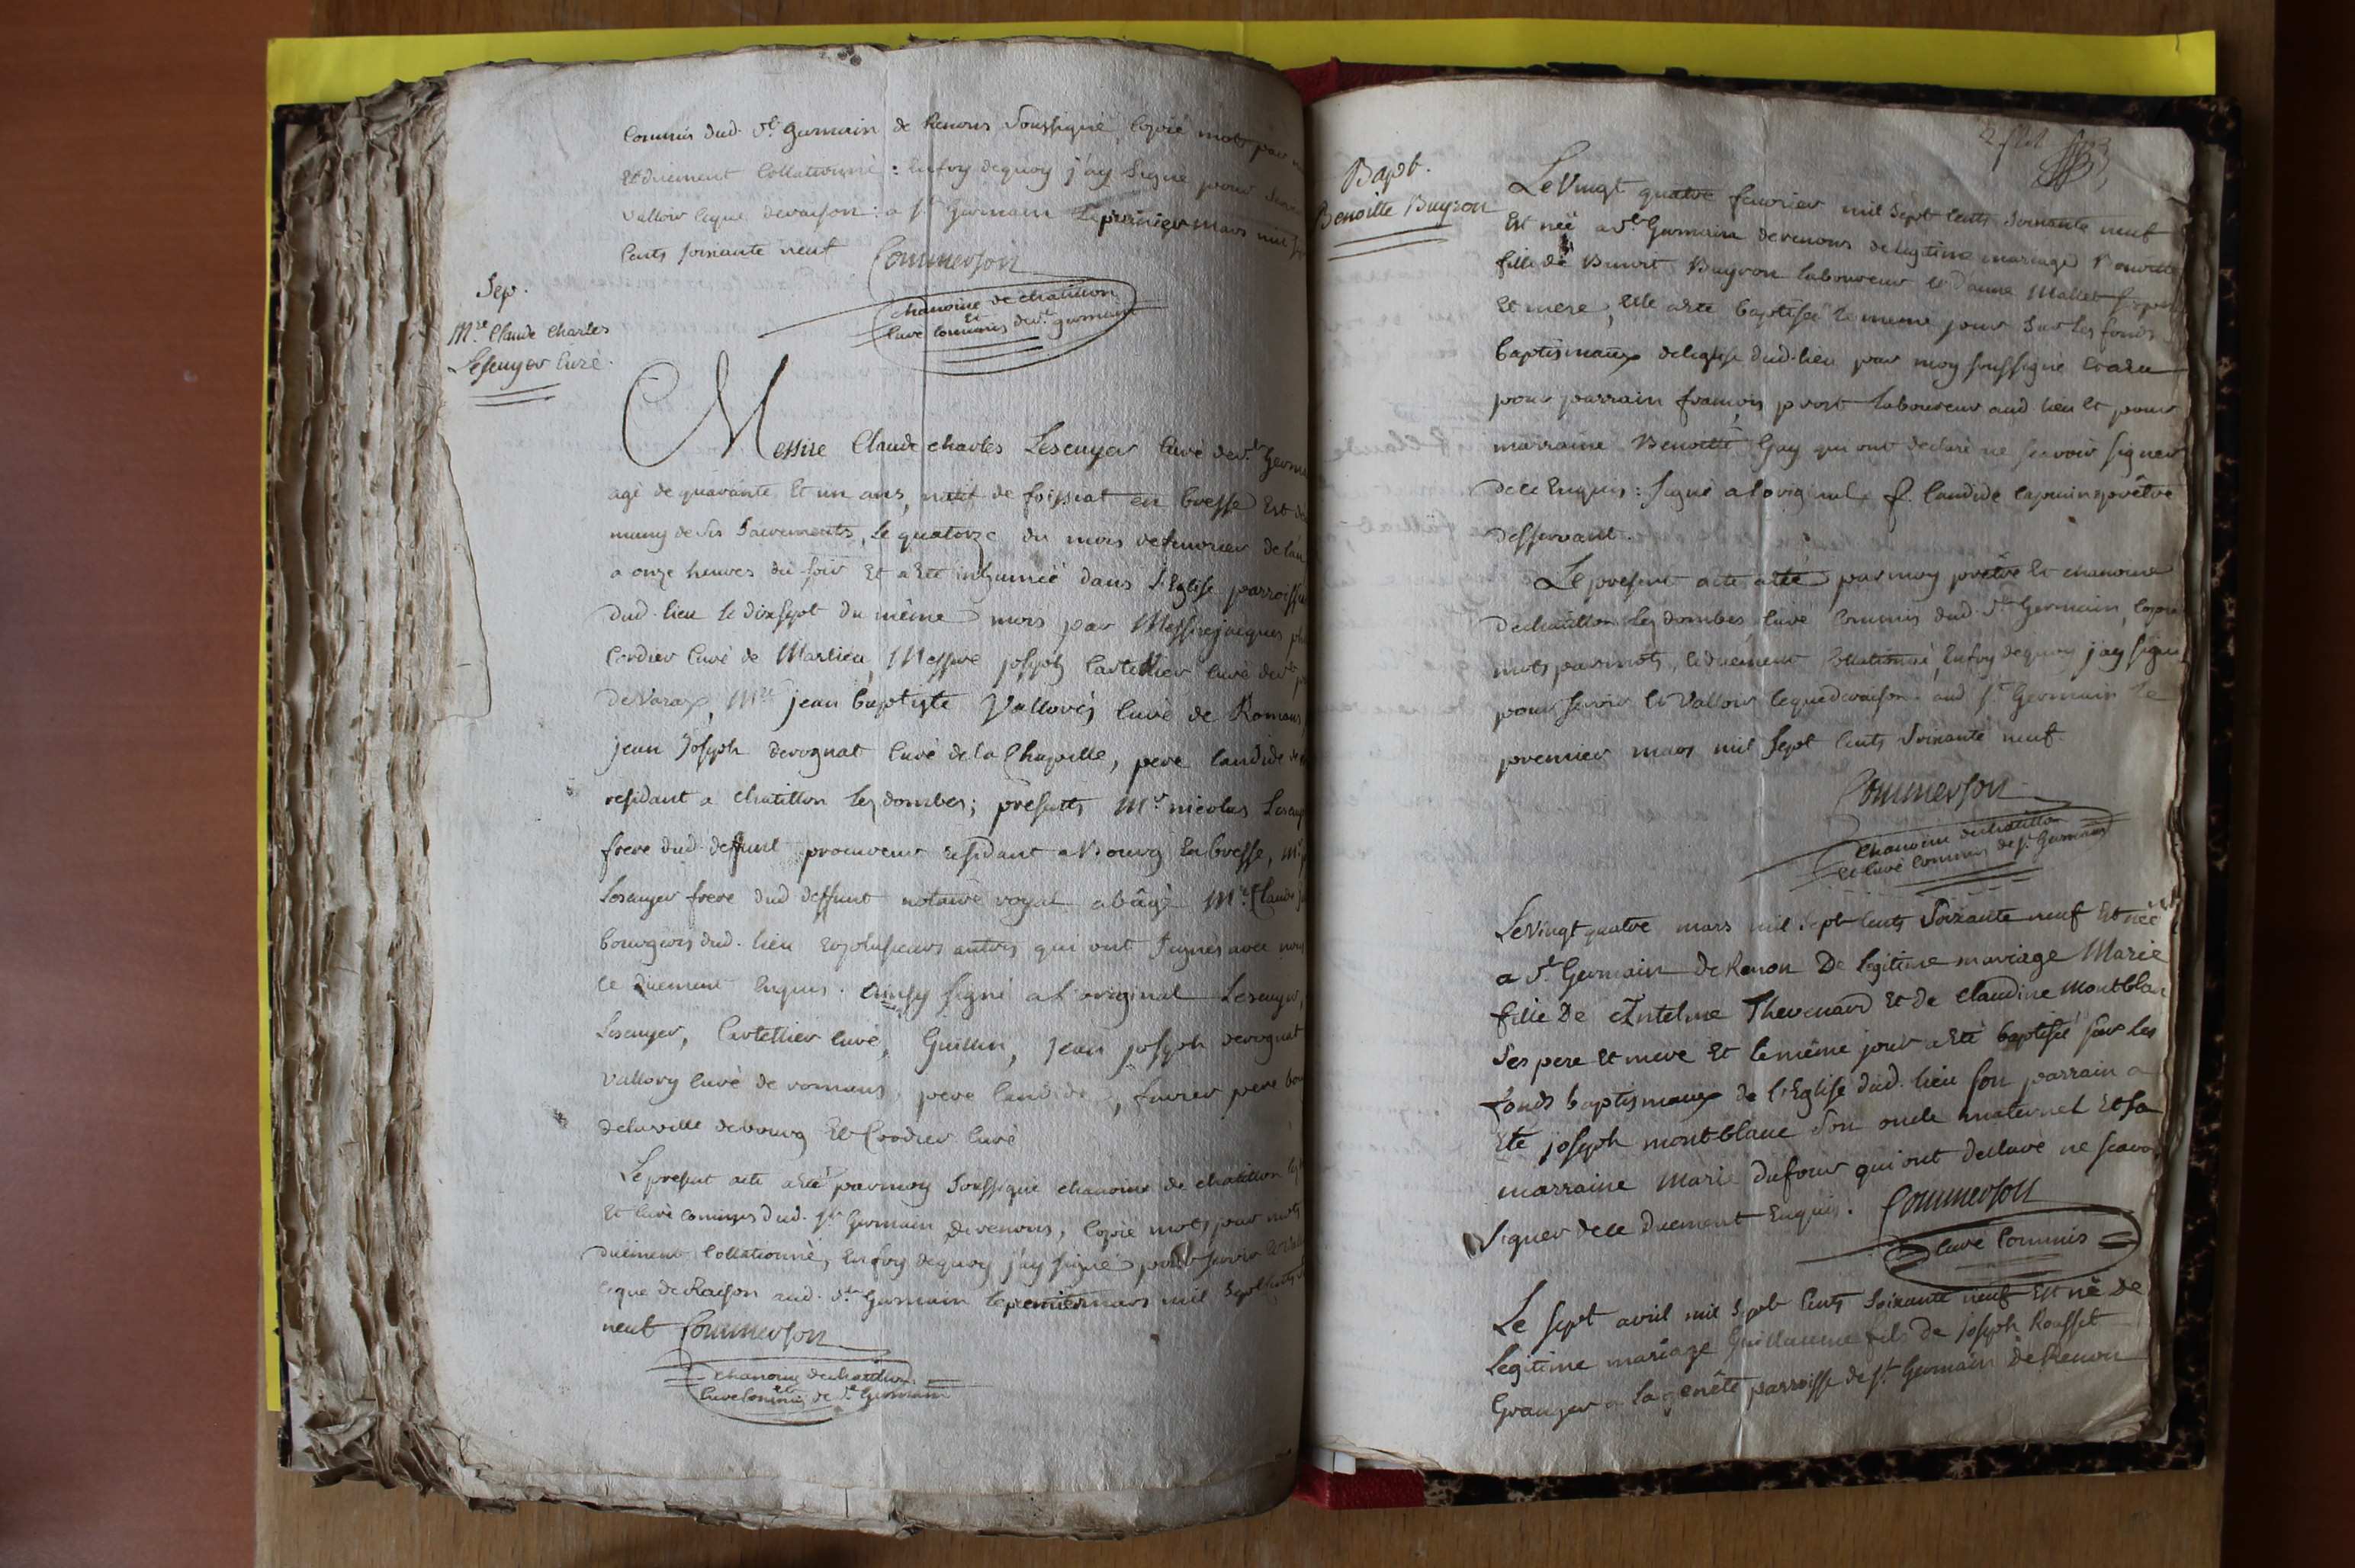 Commis dud. St. Germain de Renons soussigné, copié mots par
et düement collationné : en foy de quoy j'ay signé pour
valloir ce que de raison : a St. Germain le premier mars mil
cents soixante neuf Commerson
chanoine de chatillon
et
curé commis de St. germain
Sep.
Mre. Claude Charles
Lescuyer curé.
Messire Claude charles Lescuyer curé de St. Germ
agé de quarante et un ans, natif de foissiat en bresse est
muny de ses Sacrements, le quatorze du mois de fevrier de l'an
a onze heures du soir et a eté inhumé dans l'Eglise parroiss
dud. lieu le dix sept du même mois par Messire jacques
Cordier curé de Marlieu, Messire joseph Cartellier curé de
de Varax, Mre jean baptiste Vallorÿ curé de Romans,
jean Joseph devognat curé de la Chapelle, pere Candide
residant a chatillon les dombes; présents Mr. nicolas Lescuy
frere dud. deffunt procureur résidant a Bourg en bresse, Mr.
Lescuyer frere dud deffunt notaire royal a bâugé Mre. Claude
bourgeois dud. lieu et plusieurs autres qui ont signés avec nous
ce düement enquis. Ainsy signé a l'original Lescuyer,
Lescuyer, Cartellier curé, Guillin, jean joseph devognat
Vallory curé de romans, pere Candide, favier pere
de la ville de bourg et Cordier curé
Le present acte a eté par moy soussigné chanoine de chatillon
et curé commis dud. St Germain de renons, copié mots pour mots
düement collationné, en foy de quoy j'ay signé pour servir et
ce que de Raison aud. St. Germain le premier mars mil sept cents
neuf Commerson
chanoine de chatillon
et
curé commis de St Germain
Bapt.
Benoitte Buyron
Le Vingt quatre fevrier mil sept cents soixante neuf
Est neé a St. Germain de renons de legitime mariage Benoitte
fille de Benoit Buyron laboureur et d'anne Mallet
et mere, elle a eté baptisée le meme jour sur les fonds
baptismaux de leglise dud. lieu par moy soussigné et a eu
pour parrain françois prost laboureur aud. lieu et pour
marraine Benoitte Gay qui ont declaré ne scavoir signer
de ce enquis : signé a l'original f. Candide capucin prêtre
desservant.
Le present acte a eté par moy prêtre et chanoine
de chatillon les dombes curé commis dud. St Germain, copié
mots par mots, et düement collationné, en foy de quoy j'ay signé
pour servir et valloir ce que de raison aud St Germain le
premier mars mil sept cents soixante neuf.
Commerson
chanoine de chatillon
et curé commis de St. Germain
Le Vingt quatre mars mil sept cents soixante neuf est neé
a St. Germain de Renon de légitime mariage Marie
fille de Antelme Thevenard et de Claudine Montblan
ses pere et mere et le même jour a eté baptisée sur les
fonds baptismaux de l'Eglise dud. lieu son parrain a
eté joseph montblanc son oncle maternel et sa
marraine Marie dufour qui ont declaré ne scavoi
signer de ce düement enquis. Commerson
curé commis
Le sept avril mil sept cents soixante neuf est né de
legitime mariage Guillaume fils de Joseph Rousset
Granger a la genête parroisse de St. Germain de Renon